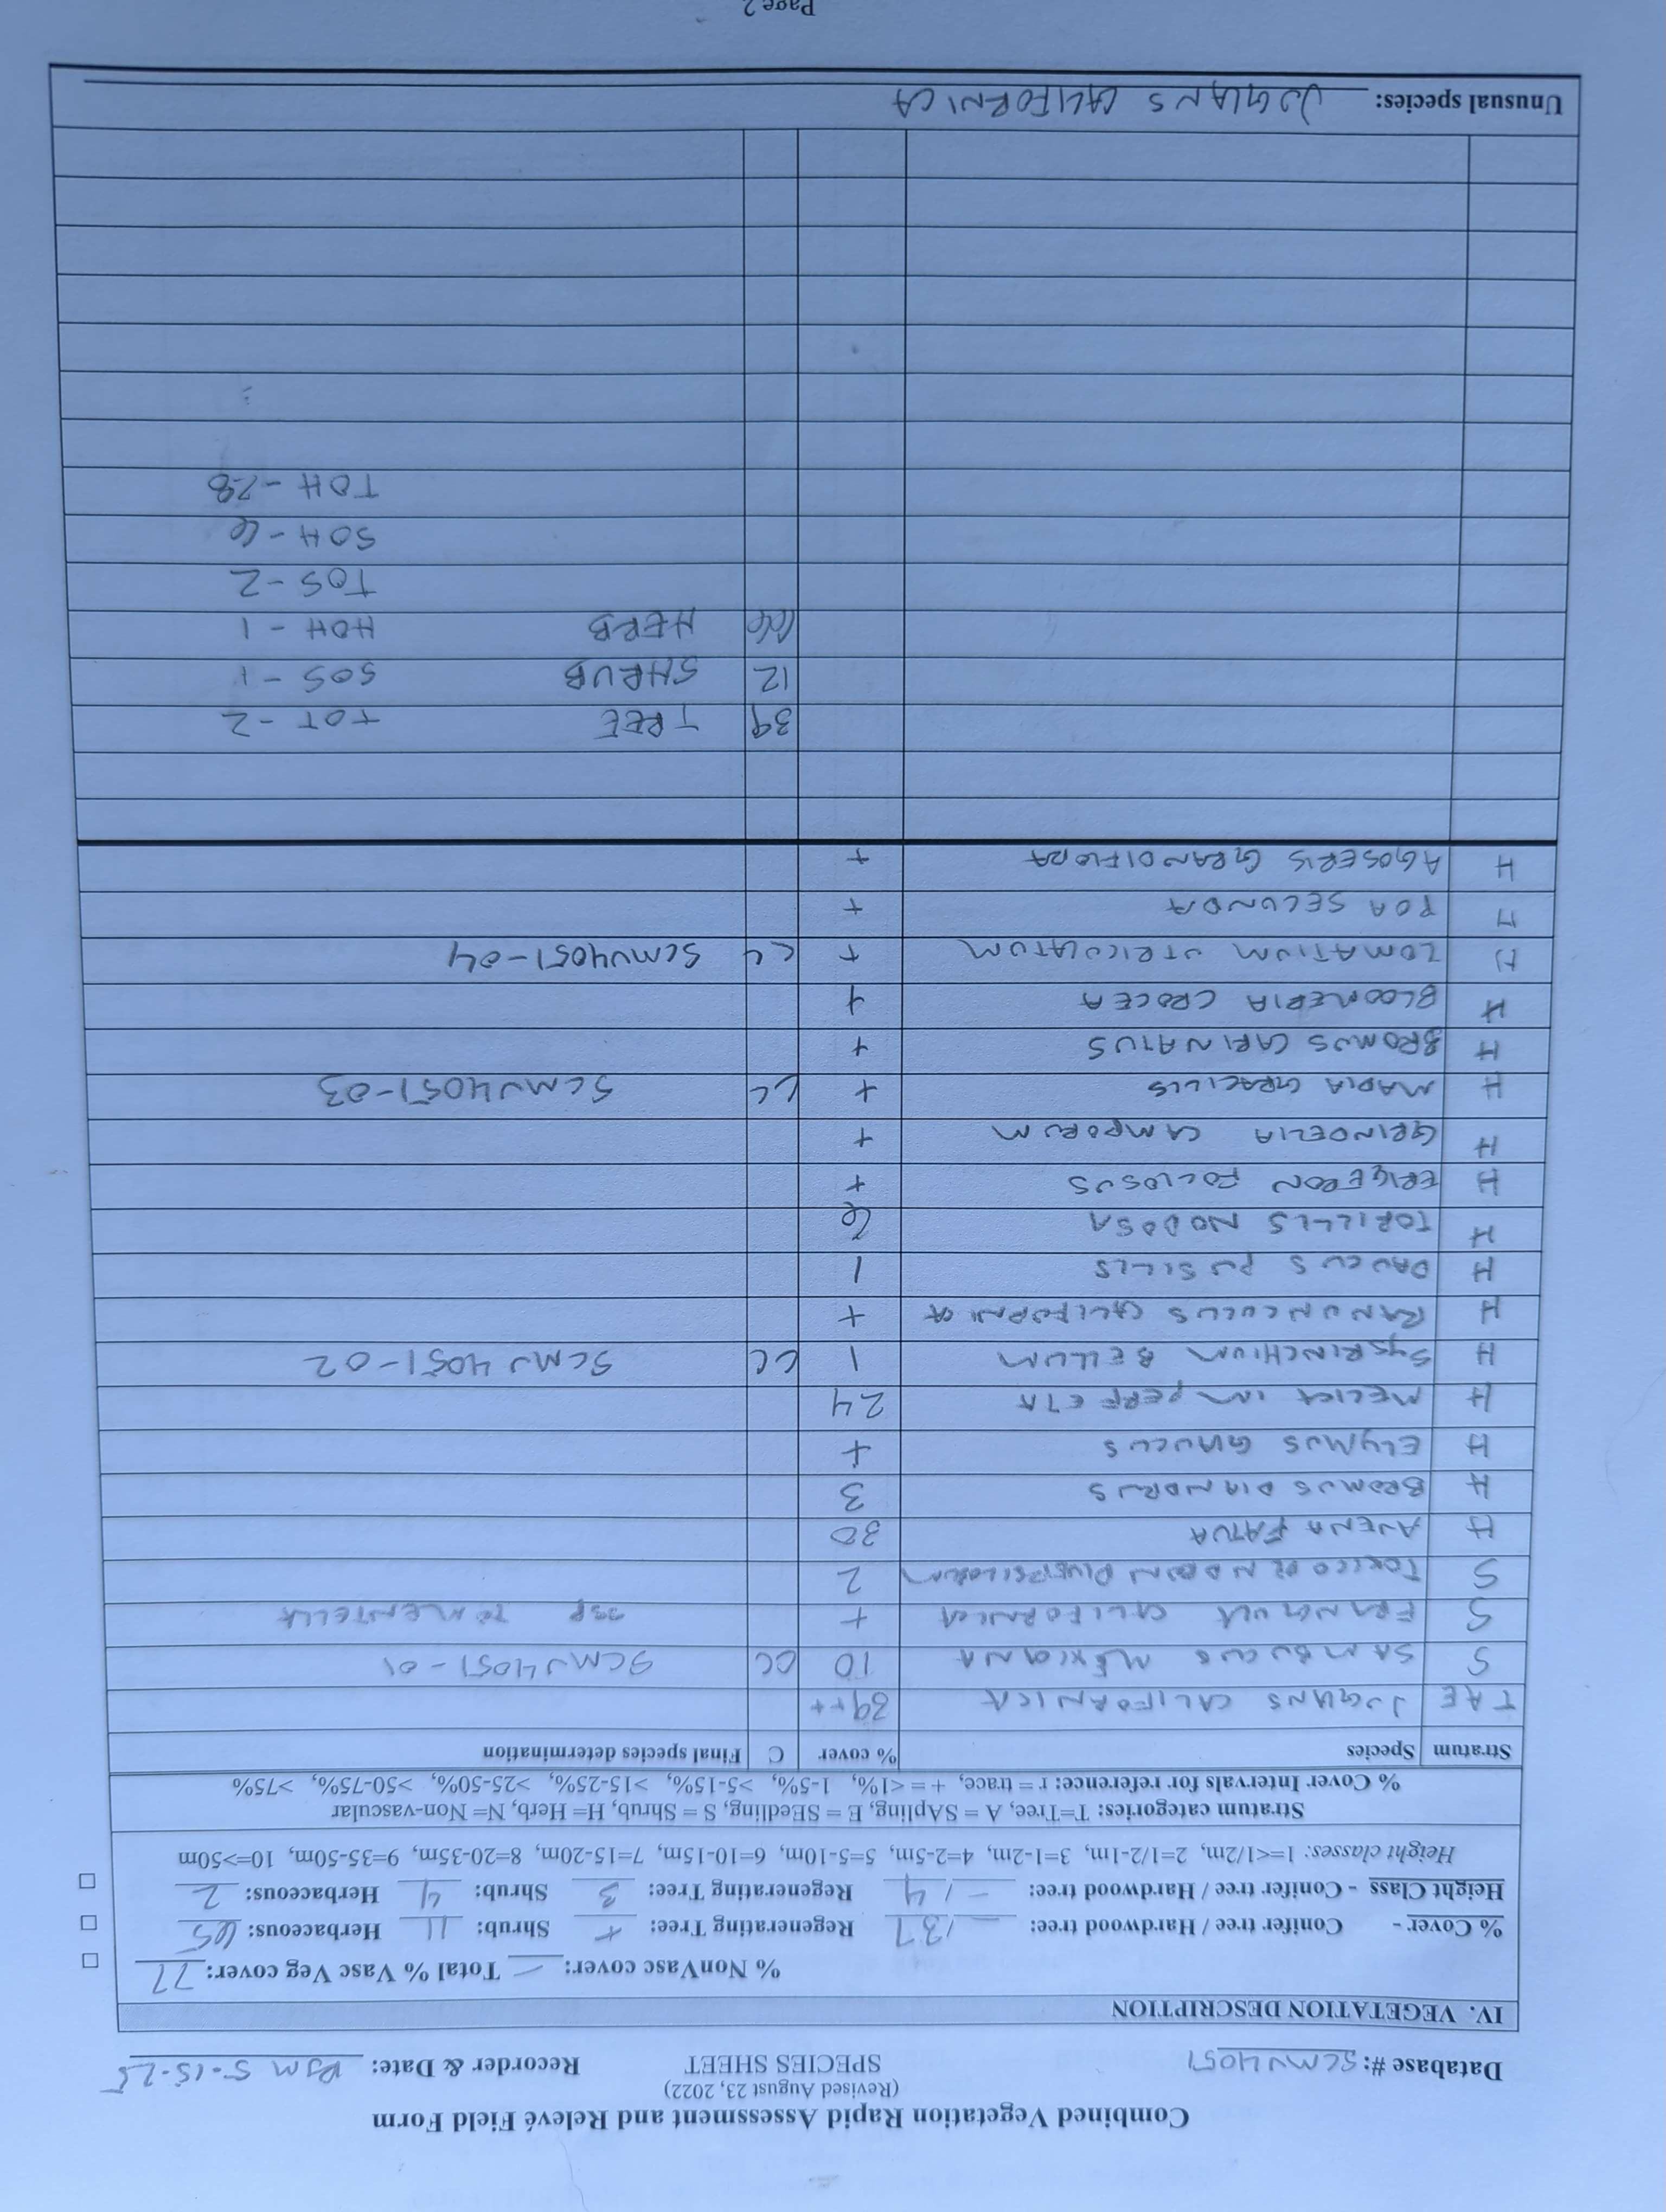 Combined Vegetation Rapid Assessment and Relevé Field Form
(Revised August 23, 2022)
SPECIES SHEET
Database #: SCMN4051 Recorder & Date: RJM 5-15-25
IV. VEGETATION DESCRIPTION
% NonVasc cover: — Total % Vasc Veg cover: 77
% Cover - Conifer tree / Hardwood tree: — / 37 Regenerating Tree: + Shrub: 11 Herbaceous: 65
Height Class - Conifer tree / Hardwood tree: — / 4 Regenerating Tree: 3 Shrub: 4 Herbaceous: 2
Height classes: 1=<1/2m, 2=1/2-1m, 3=1-2m, 4=2-5m, 5=5-10m, 6=10-15m, 7=15-20m, 8=20-35m, 9=35-50m, 10=>50m
Stratum categories: T=Tree, A = SApling, E = SEedling, S = Shrub, H= Herb, N= Non-vascular
% Cover Intervals for reference: r = trace, + = <1%, 1-5%, >5-15%, >15-25%, >25-50%, >50-75%, >75%
Stratum Species % cover C Final species determination
TAE JUGLANS CALIFORNICA 39++
S SAMBUCUS MEXICANA 10 CC SCMN4051-01
S FRANGULA CALIFORNICA + SSP TOMENTELLA
S TOXICODENDRON DIVERSILOBUM 2
H AVENA FATUA 30
H BROMUS DIANDRUS 3
H ELYMUS GLAUCUS +
H MELICA IMPERFETA 24
H SYSRINCHIUM BELLUM 1 CC SCMN4051-02
H RANUNCULUS CALIFORNICA +
H DAUCUS PUSILLS 1
H TORILLS NODOSA 6
H ERIGERON FOLIOSUS +
H GRINDELIA CAMPORUM +
H MADIA GRACILIS + CC SCMN4051-03
H BROMUS CARINATUS +
H BLOOMERIA CROCEA +
H LOMATIUM UTRICULATUM + CC SCMN4051-04
H POA SECUNDA +
H AGOSERIS GRANDIFLORA +
39 TREE TOT - 2
12 SHRUB SOS - 1
66 HERB HOH - 1
TOS - 2
SOH - 6
TOH - 28
Unusual species: JUGLANS CALIFORNICA
Page 2